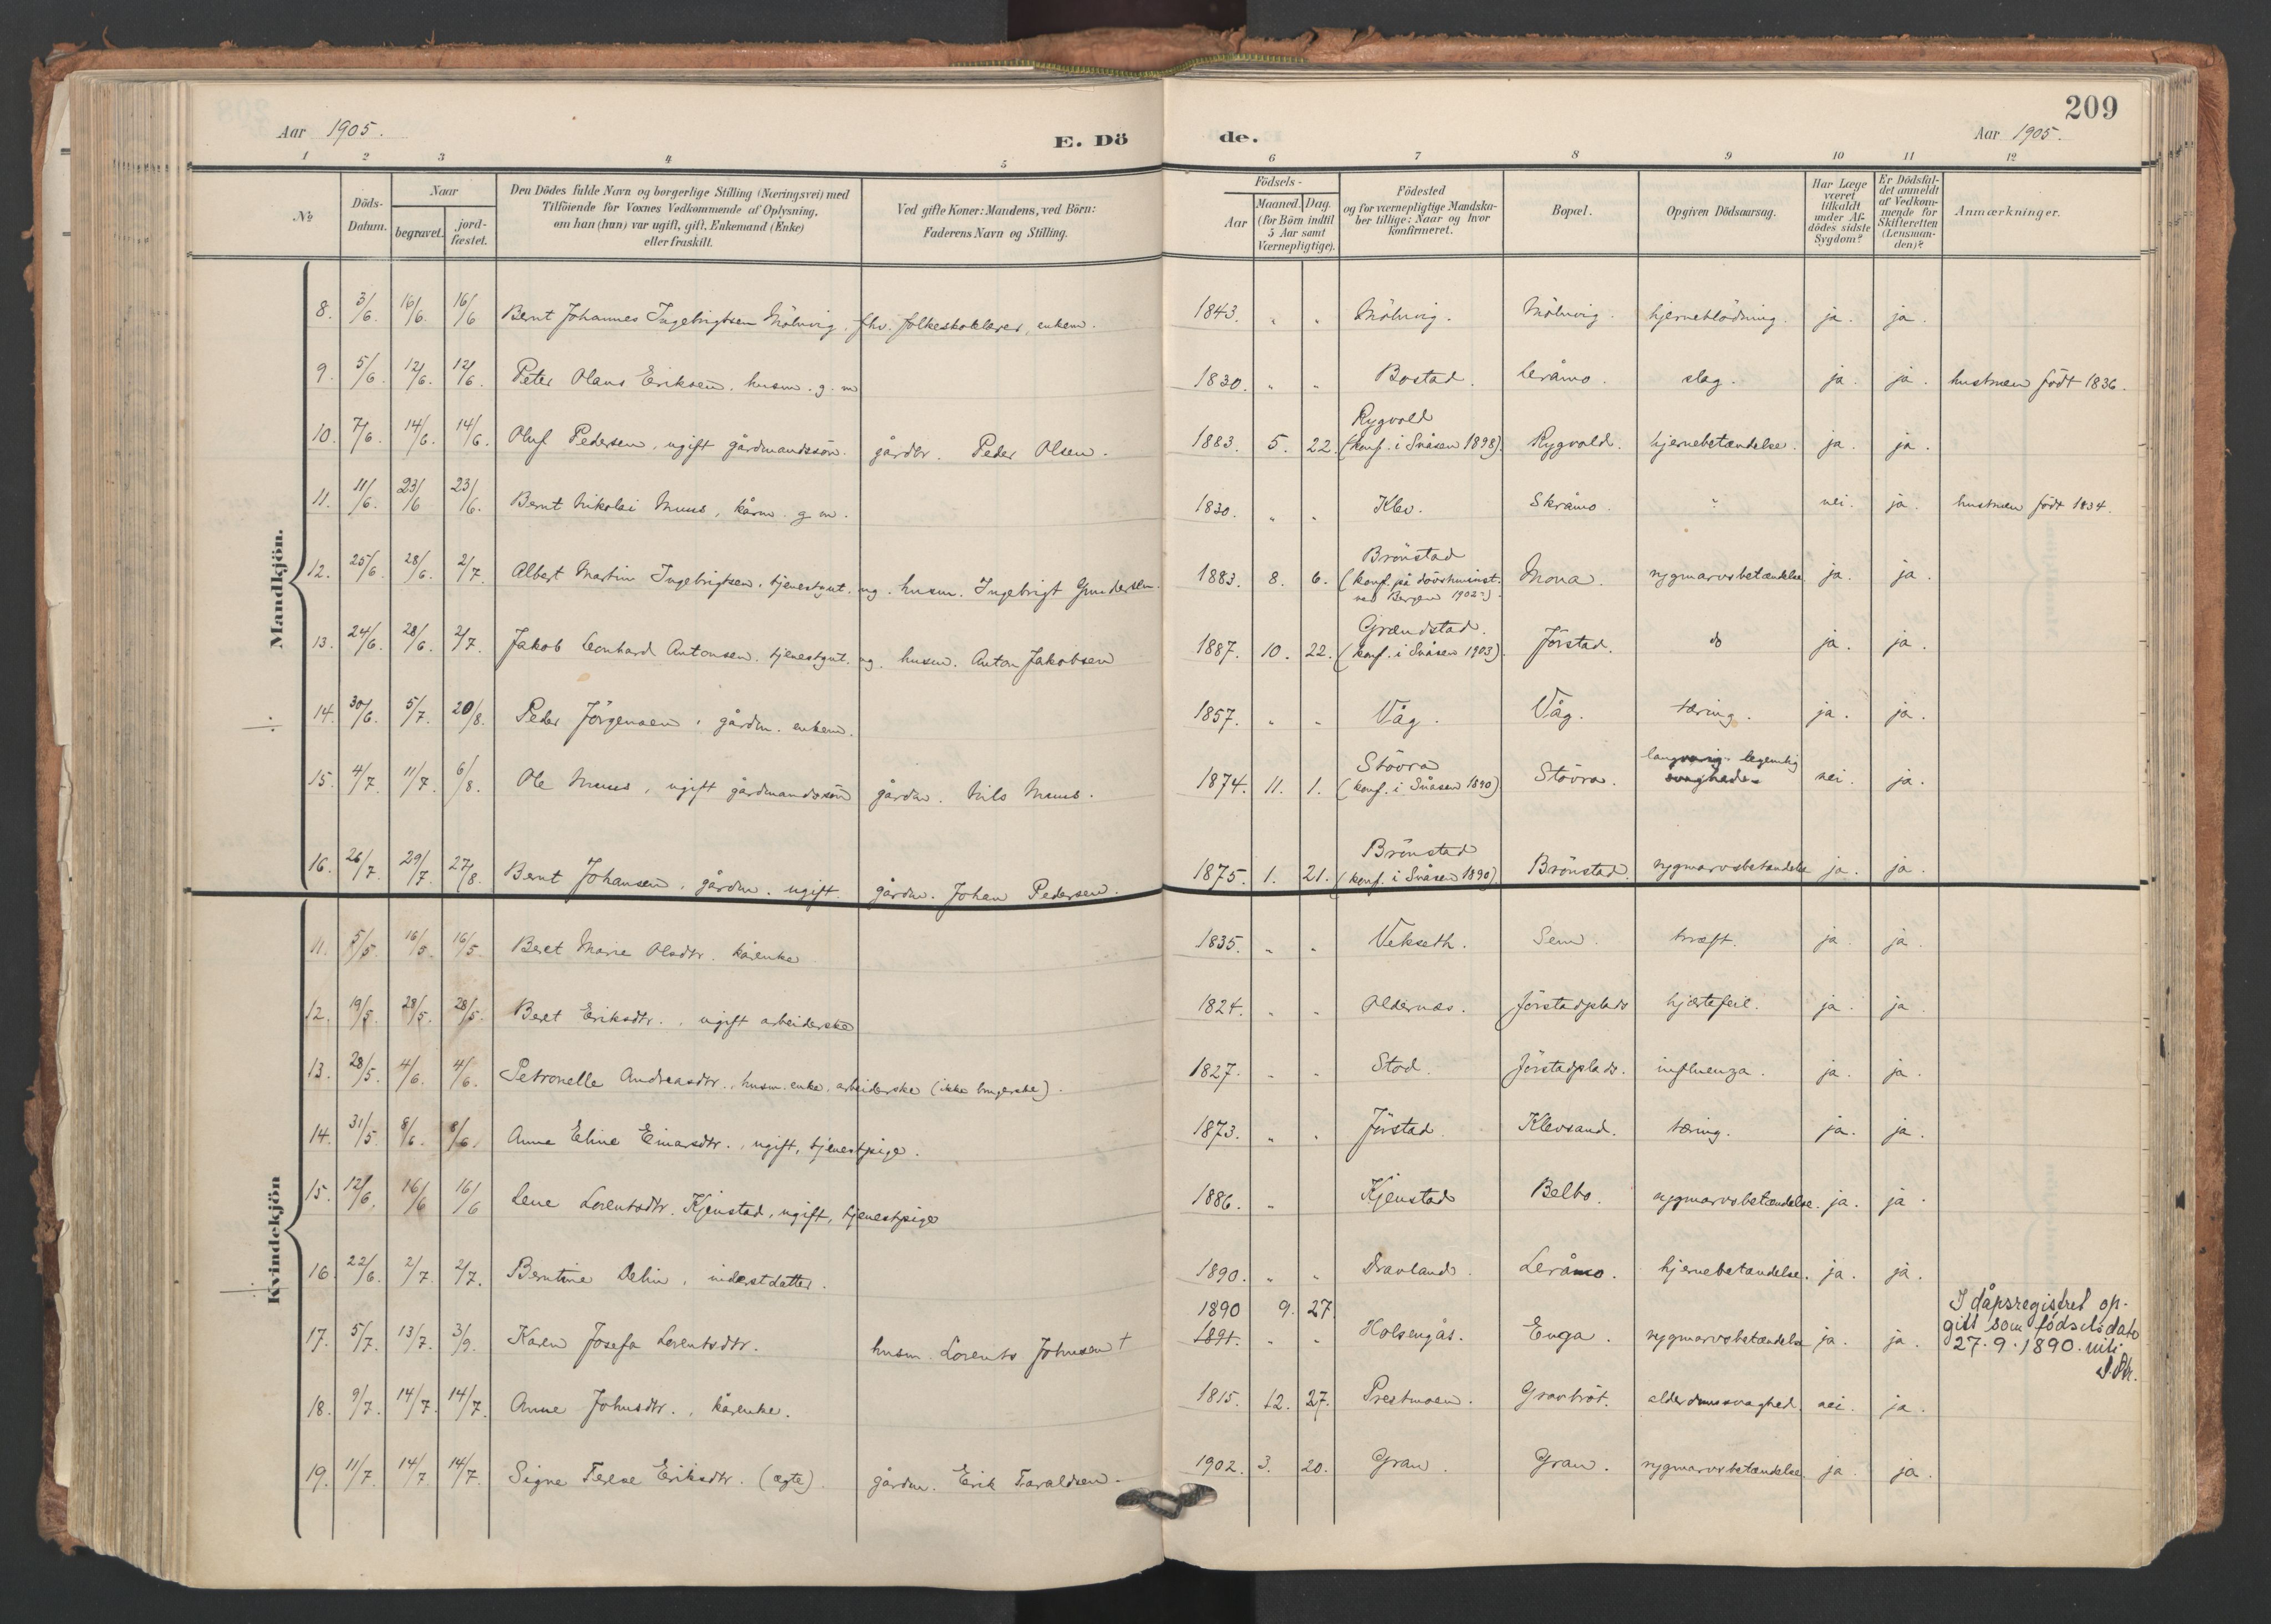 209
Aar 1905.
E. Dö
de.
Aar 1905.
1 2 3 4 5 6 7 8 9 10 11 12
№
Döds-
Datum.
Naar
begravet.
jord-
fæstet.
Den Dödes fulde Navn og borgerlige Stilling (Næringsvei) med
Tilföiende for Voxnes Vedkommende af Oplysning,
om han (hun) var ugift, gift, Enkemand (Enke)
eller fraskilt.
Ved gifte Koner: Mandens, ved Börn:
Faderens Navn og Stilling.
Födsels-
Aar
Maaned. Dag.
(for Börn indtil
5 Aar samt
Værnepligtige).
Födested
og for værnepligtige Mandska-
ber tillige: Naar og hvor
konfirmeret.
Bopæl.
Opgiven Dödsaarsag.
Har Læge
været
tilkaldt
under Af-
dödes sidste
Sygdom?
Er Dödsfal-
det anmeldt
af Vedkom-
mende for
Skifteretten
(Lensman-
den)?
Anmærkninger.
Mandkjön.
8. 3/6. 16/6. 16/6 Bernt Johannes Ingebrigtsen Mölnvig, fhv. folkeskolelærer, enkem. 1843. " " Mölnvig. Mölnvig. hjerneblödning. ja. ja.
9. 5/6. 12/6. 12/6. Peter Olaus Eriksen, husm. g. m 1830. " " Bostad. Leråmo. slag. ja. ja. hustruen födt 1836.
10. 7/6. 14/6. 14/6. Oluf Pedersen, ugift gårdmandssön. gårdbr. Peder Olsen. 1883. 5. 22. Rygvold
(konf. i Snåsen 1898). Rygvold. hjernebetændelse. ja. ja.
11. 11/6. 23/6 23/6. Bernt Nikolai Muus, kårm. g m. 1830. " " Klev. Skråmo. " nei. ja. hustruen födt 1834.
12. 25/6. 28/6. 2/7. Albert Martin Ingebrigtsen, tjenestgut. ug. husm. Ingebrigt Gundersen. 1883. 8. 6. Brönstad
(konf. på dövstuminst.
ved Bergen 1902?). Mona. rygmarvsbetændelse ja. ja.
13. 24/6. 28/6. 2/7. Jakob Leonhard Antonsen. tjenestgut. ug. husm. Anton Jakobsen 1887. 10. 22. Grændstad.
(konf. i Snåsen 1903). Jörstad. do ja. ja.
14. 30/6. 5/7. 20/8. Peder Jörgensen, gårdm. enkem. 1857. " " Våg. Våg. tæring. ja. ja.
15. 4/7. 11/7. 6/8. Ole Muus, ugift gårdmandssön gårdm. Nils Muus. 1874. 11. 1. Stövra
(konf. i Snåsen 1890) Stövra. langvarig legemlig
svaghed. nei. ja.
16. 26/7. 29/7. 27/8. Bernt Johansen, gårdm. ugift. gårdm. Johan Pedersen. 1875. 1. 21. Brönstad
(konf. i Snåsen 1890) Brönstad. rygmarvsbetændelse ja. ja.
Kvindekjön
11. 5/5. 16/5. 16/5. Beret Marie Olsdtr. kårenke 1835. " " Vekseth. Sem. kræft. ja. ja.
12. 19/5. 28/5. 28/5. Beret Eriksdtr., ugift arbeiderske 1824. " " Oldernæs. Jörstadplads hjertefeil. ja. ja
13. 28/5. 4/6. 4/6. Petronelle Andreasdtr., husm. enke, arbeiderske (ikke brugerske). 1827. " " Stod. Jörstadplads. influenza. ja. ja.
14. 31/5. 8/6. 8/6. Anne Eline Einarsdtr., ugift, tjenestpige. 1873. " " Jörstad. Klevsand. tæring. ja. ja.
15. 12/6. 16/6 16/6 Lene Lorentsdtr. Kjenstad, ugift, tjenestpige 1886. " Kjenstad Belbo. rygmarvsbetændelse. ja. ja.
16. 22/6. 2/7. 2/7. Berntine Delin, inderstdatter. 1890. " " Dravland. Leråmo. hjernebetændelse. ja. ja.
17. 5/7. 13/7. 3/9. Karen Josefa Lorentsdtr. husm. Lorents Johnsen † 1890 9. 27
1891. " " Holsengås. Enga. rygmarvsbetændelse ja. ja. I dåpsregistret op-
gitt som fødselsdato
27.9.1890.
18. 9/7. 14/7. 14/7. Anne Johnsdtr., kårenke. 1815. 12. 27. Prestmoen. Gravbröt. alderdomssvaghed. nei. ja.
19. 11/7. 14/7. 14/7. Signe Terese Eriksdtr. (ægte). gårdm. Erik Taraldsen. 1902. 3. 20. Gran. Gran. rygmarvsbetændelse ja. ja.